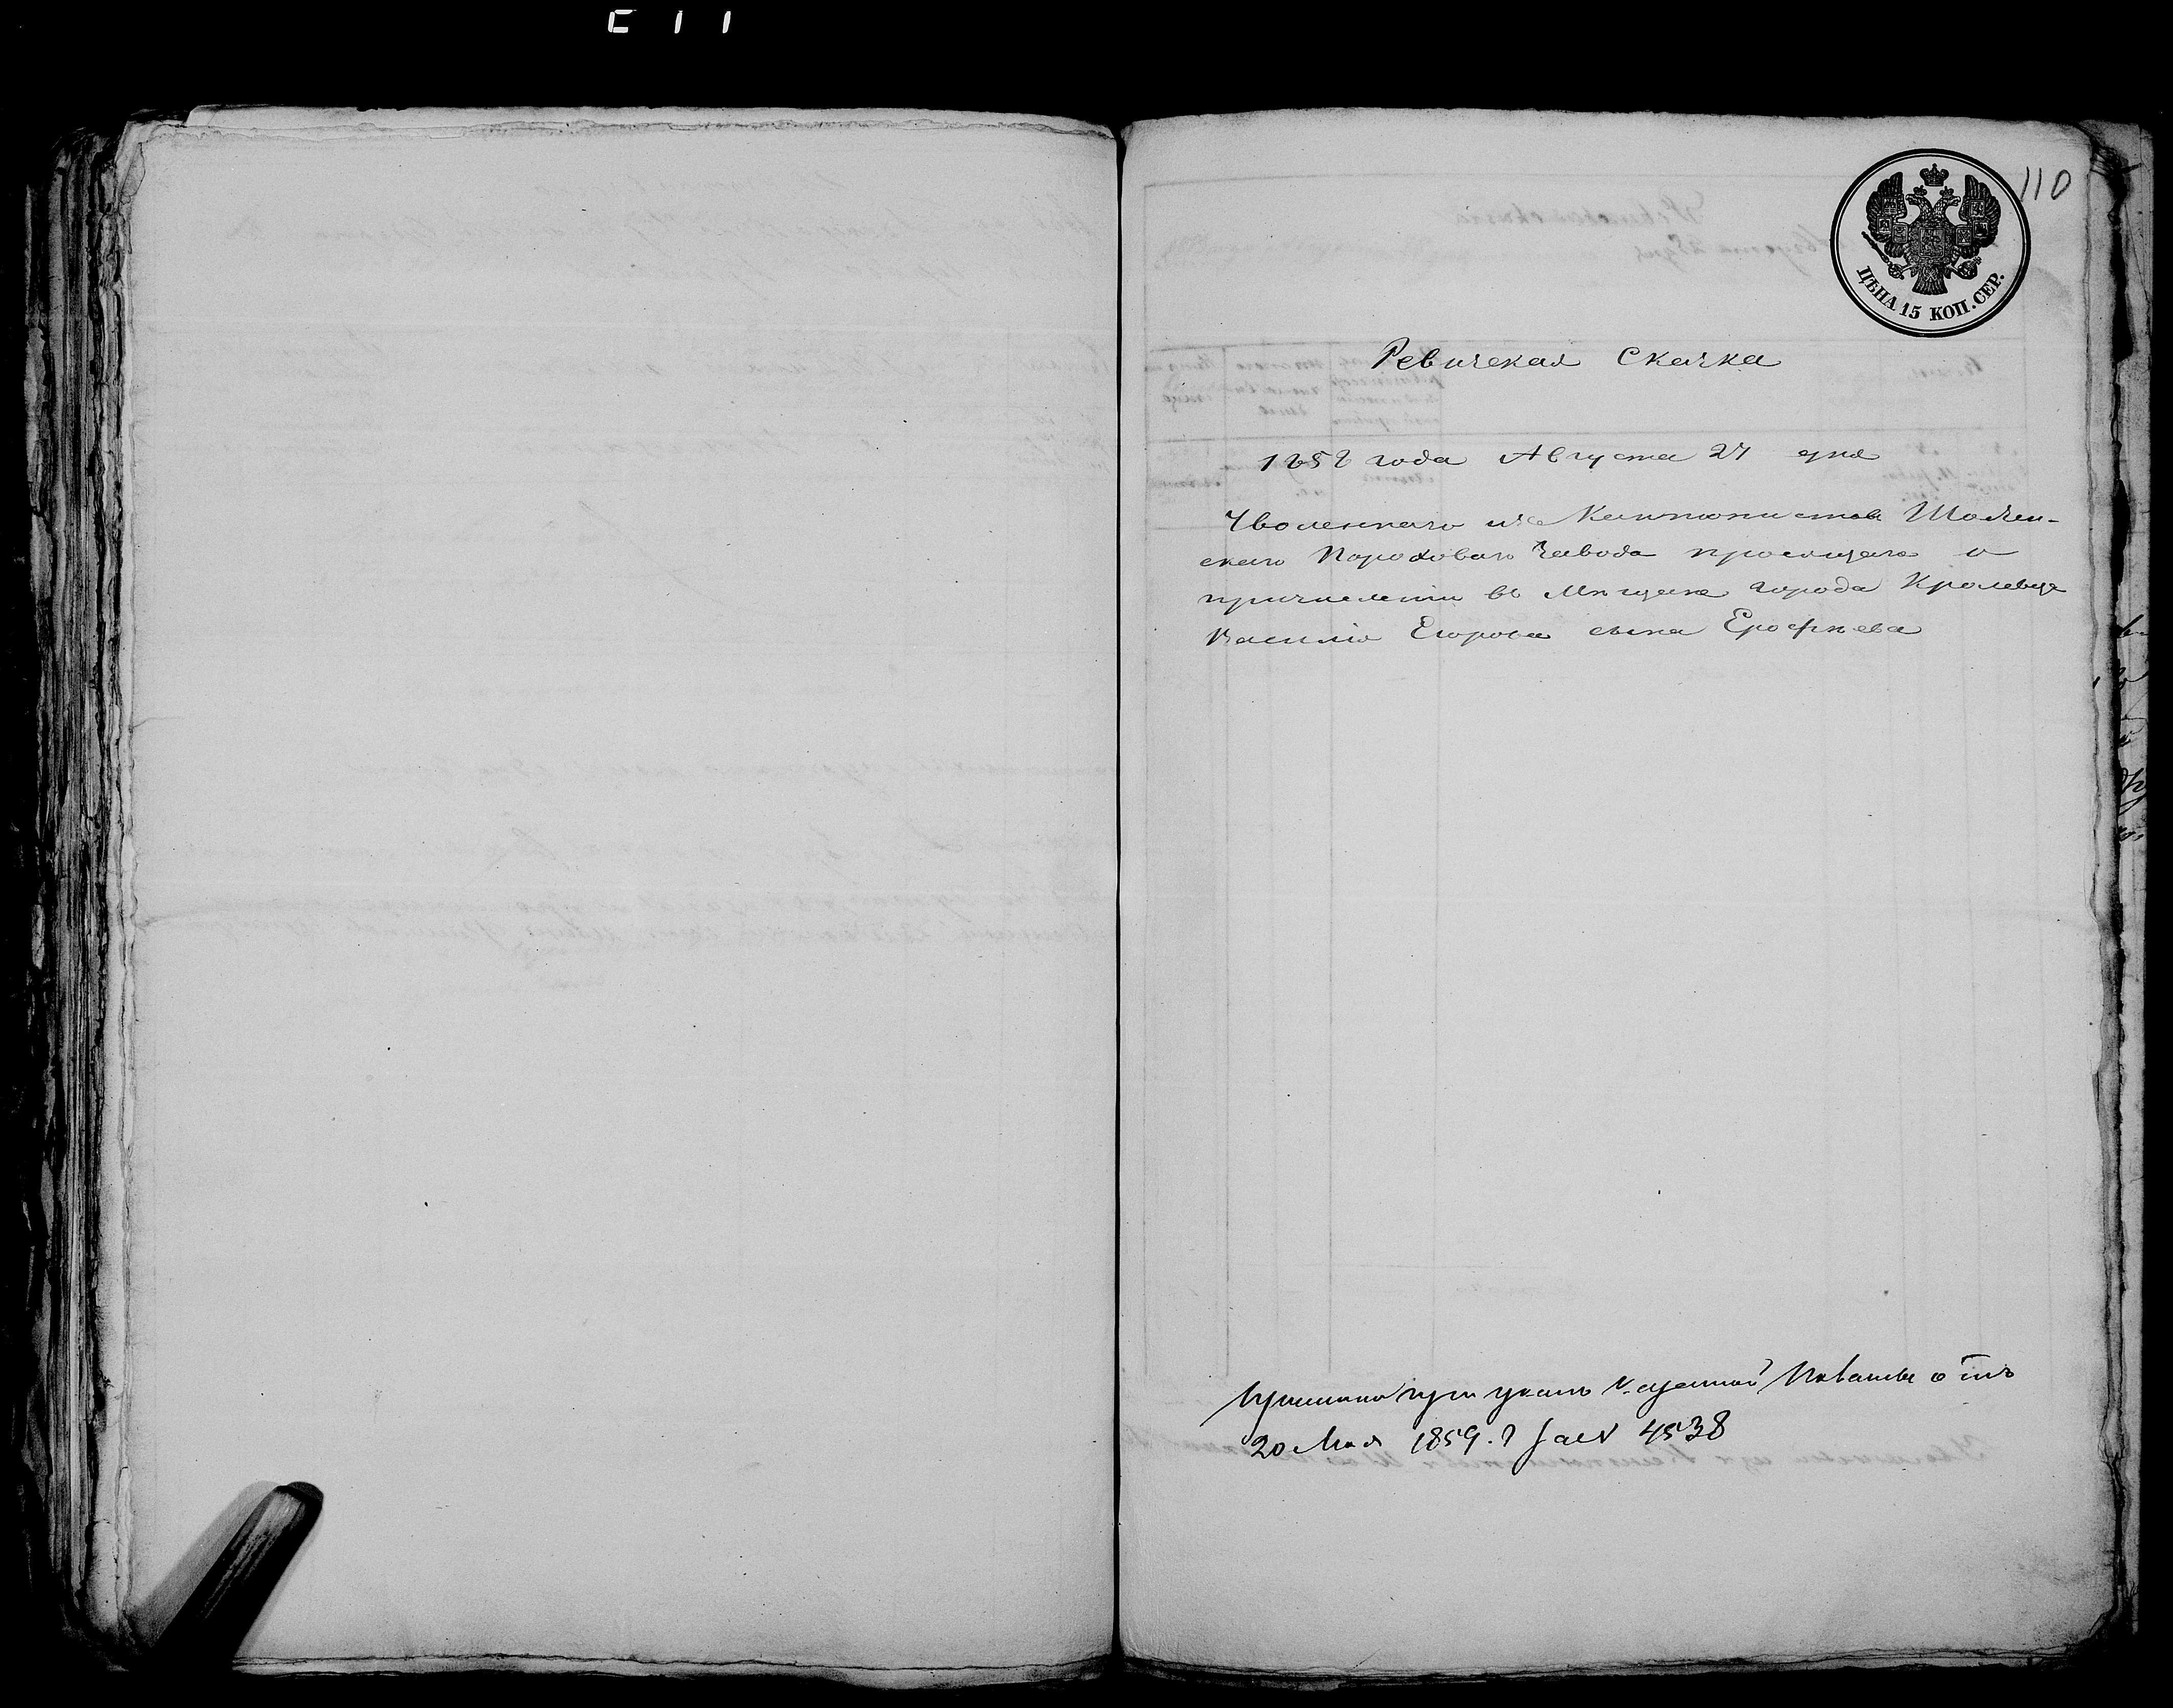 110
ЦѢНА 15 КОП. СЕР.
Ревизская Сказка
1858 года Августа 27 дня
Уволеннаго изъ Кантонистовъ Шостен-
скаго Пороховаго Завода просящаго о
причисленіи въ Мѣщане города Кролевца
Василія Егорова сына Ерофѣева
при указѣ Казенной Палаты отъ
20 Мая 1859. г. за № 4538